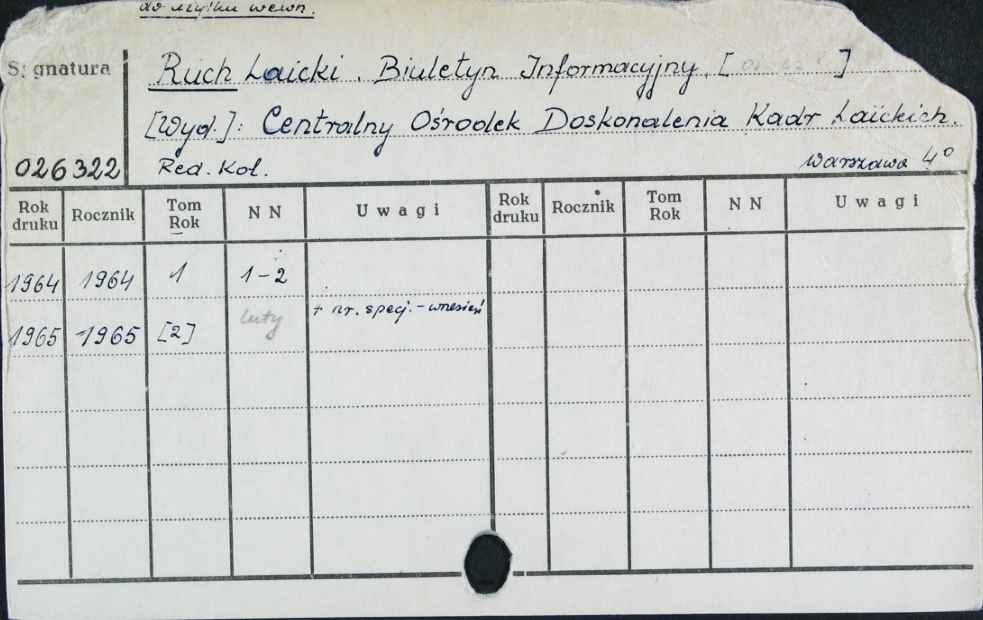 do użytku wewn.
Sygnatura
Ruch Laicki. Biuletyn Informacyjny. [ ]
[Wyd.]: Centralny Ośrodek Doskonalenia Kadr Laickich.
026322 Red. Kol. Warszawa 4°
Rok druku Rocznik Tom Rok NN Uwagi Rok druku Rocznik Tom Rok NN Uwagi
1964 1964 1 1-2
1965 1965 [2] luty + nr. specj. - wrzesień